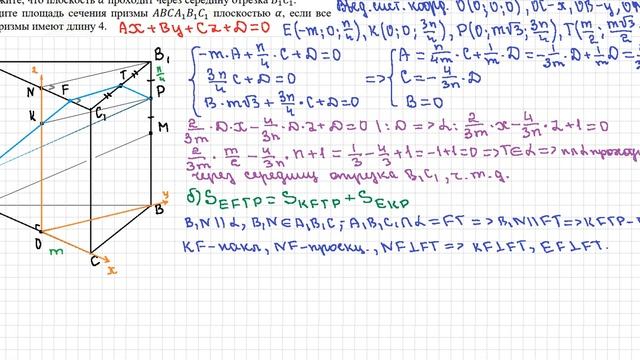 что плоскость α проходит через середину отрезка B₁C₁.
площадь сечения призмы ABCA₁B₁C₁ плоскостью α, если все
имеют длину 4. Ax+By+Cz+D=0
Введ. сист. коорд. O(0;0;0), OC-x, OB-y,
E(-m;0;n/4), K(0;0;3n/4), P(0;m√3;3n/4), T(m/2;
{-m·A+n/4·C+D=0
3n/4 C+D=0
B·m√3+3n/4·C+D=0
=> {A=n/4m·C+1/m D=-1/3m·D+1/m D=
C=-4/3n·D
B=0
2/3m·D·x-4/3n·D·z+D=0 |:D => α: 2/3m·x-4/3n·z+1=0
2/3m·m/2-4/3n·n+1=1/3-4/3+1=-1+1=0 => T∈α => пл α
через середину отрезка B₁C₁, ч.т.д.
б) S_EFTP=S_KFTP+S_EKP
B₁N∥α, B₁N∈A₁B₁C₁; A₁B₁C₁∩α=FT => B₁N∥FT => KFTP-
KF-накл, NF-проекц., NF⊥FT => KF⊥FT, EF⊥FT.
z
N
F
T
B₁
n/4
P
K
C₁
M
O
B
y
m
C
x